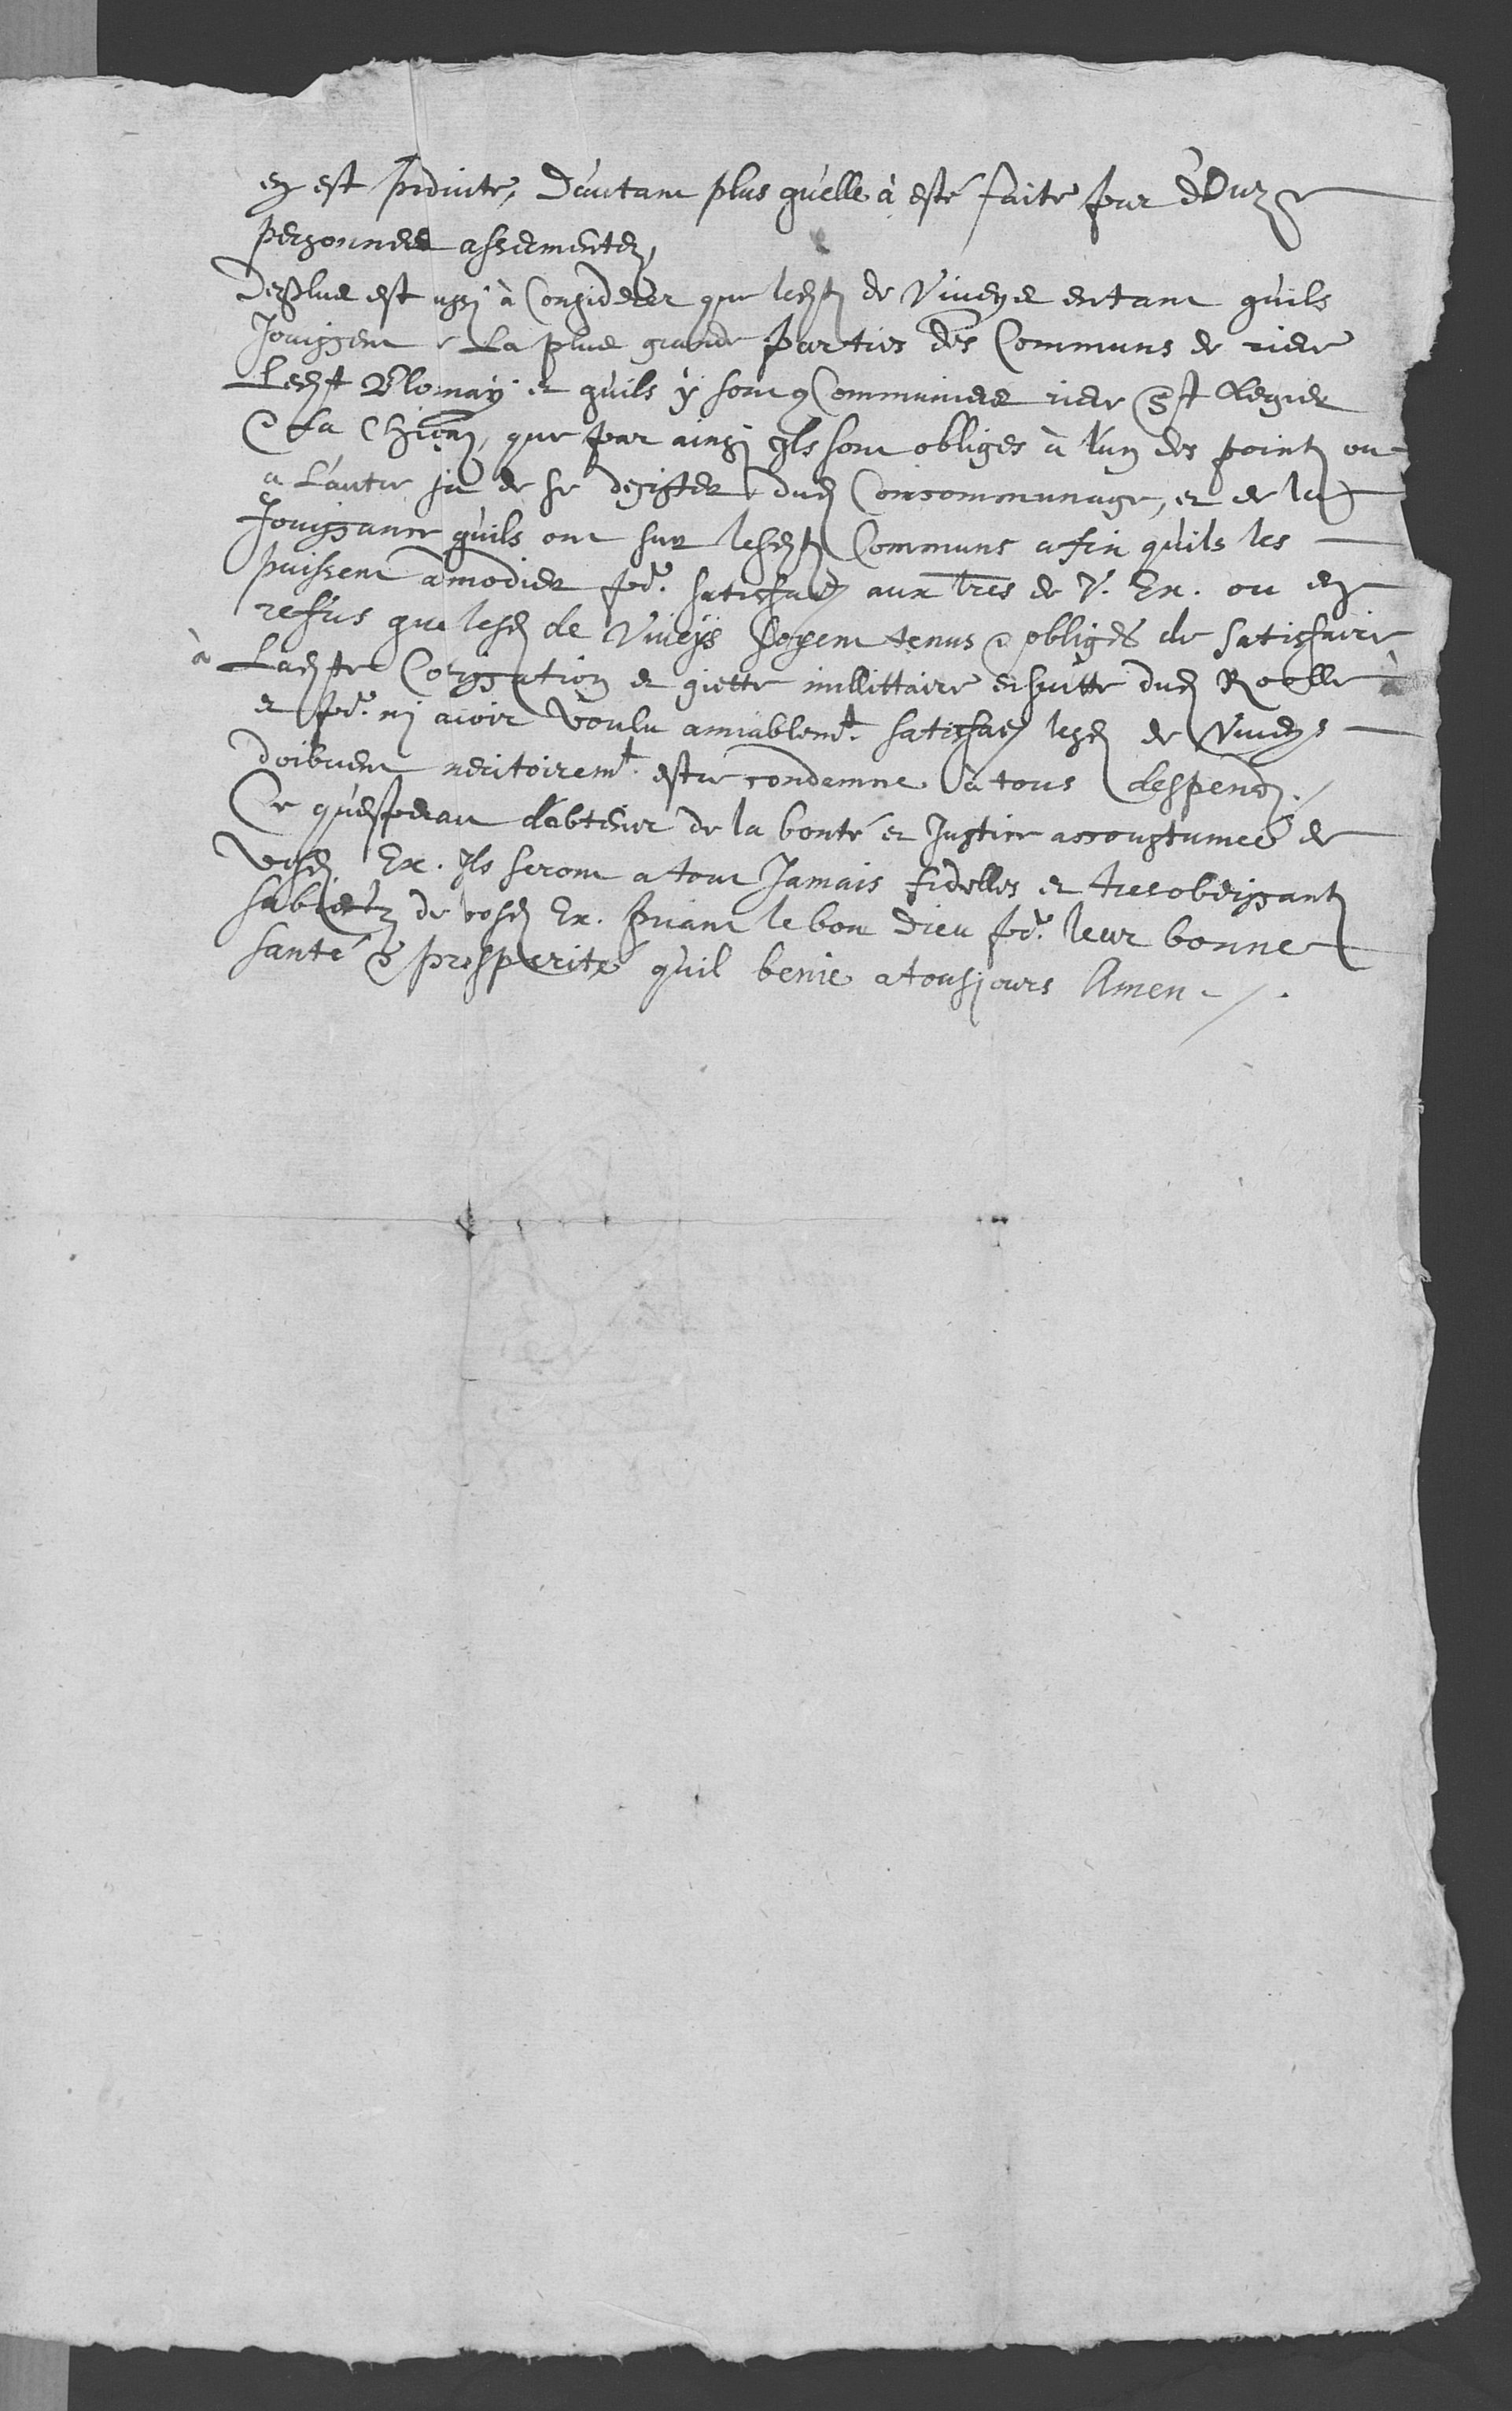 en est produite, D'autant plus qu'elle à esté faite par dOuze
personnes assermentez,
Deplus est ussi à Considerer que lesdts de Viveys entant quils
Jouissent La plus grande parties des Communs de riere
Ledt Blonay et quils y sont Communiers riere St Legier
& La Chiesaz, que par ainsi Ils sont obliges à l'un des points ou
a L'autre sie de se desister dud Concommunage, et de la
Jouissance quils ont sur lesdts Communs afin quils les
puissent amodier pr. satisfaire aux lres de V. Ex. ou en
reffus que lesd de Viveys soyent tenus & obligés de Satisfaire
à Ladte Cotissation et giette millittaire ensuitte dud Roolle
et pr. nj avoir voulu amiablemt. satisfaire lesd de Viveys
doibvent meritoiremt. estre condemne à tous despends.
Ce quesperant dobtenir de la bonté et Justice accoustumee de
vosd. Ex. Ils seront a tout Jamais fidelles et tresobeissants
subiectz de vosd Ex. Priant le bon Dieu pr. leur bonne
santé & prosperité quil benie a tousjours Amen ./.